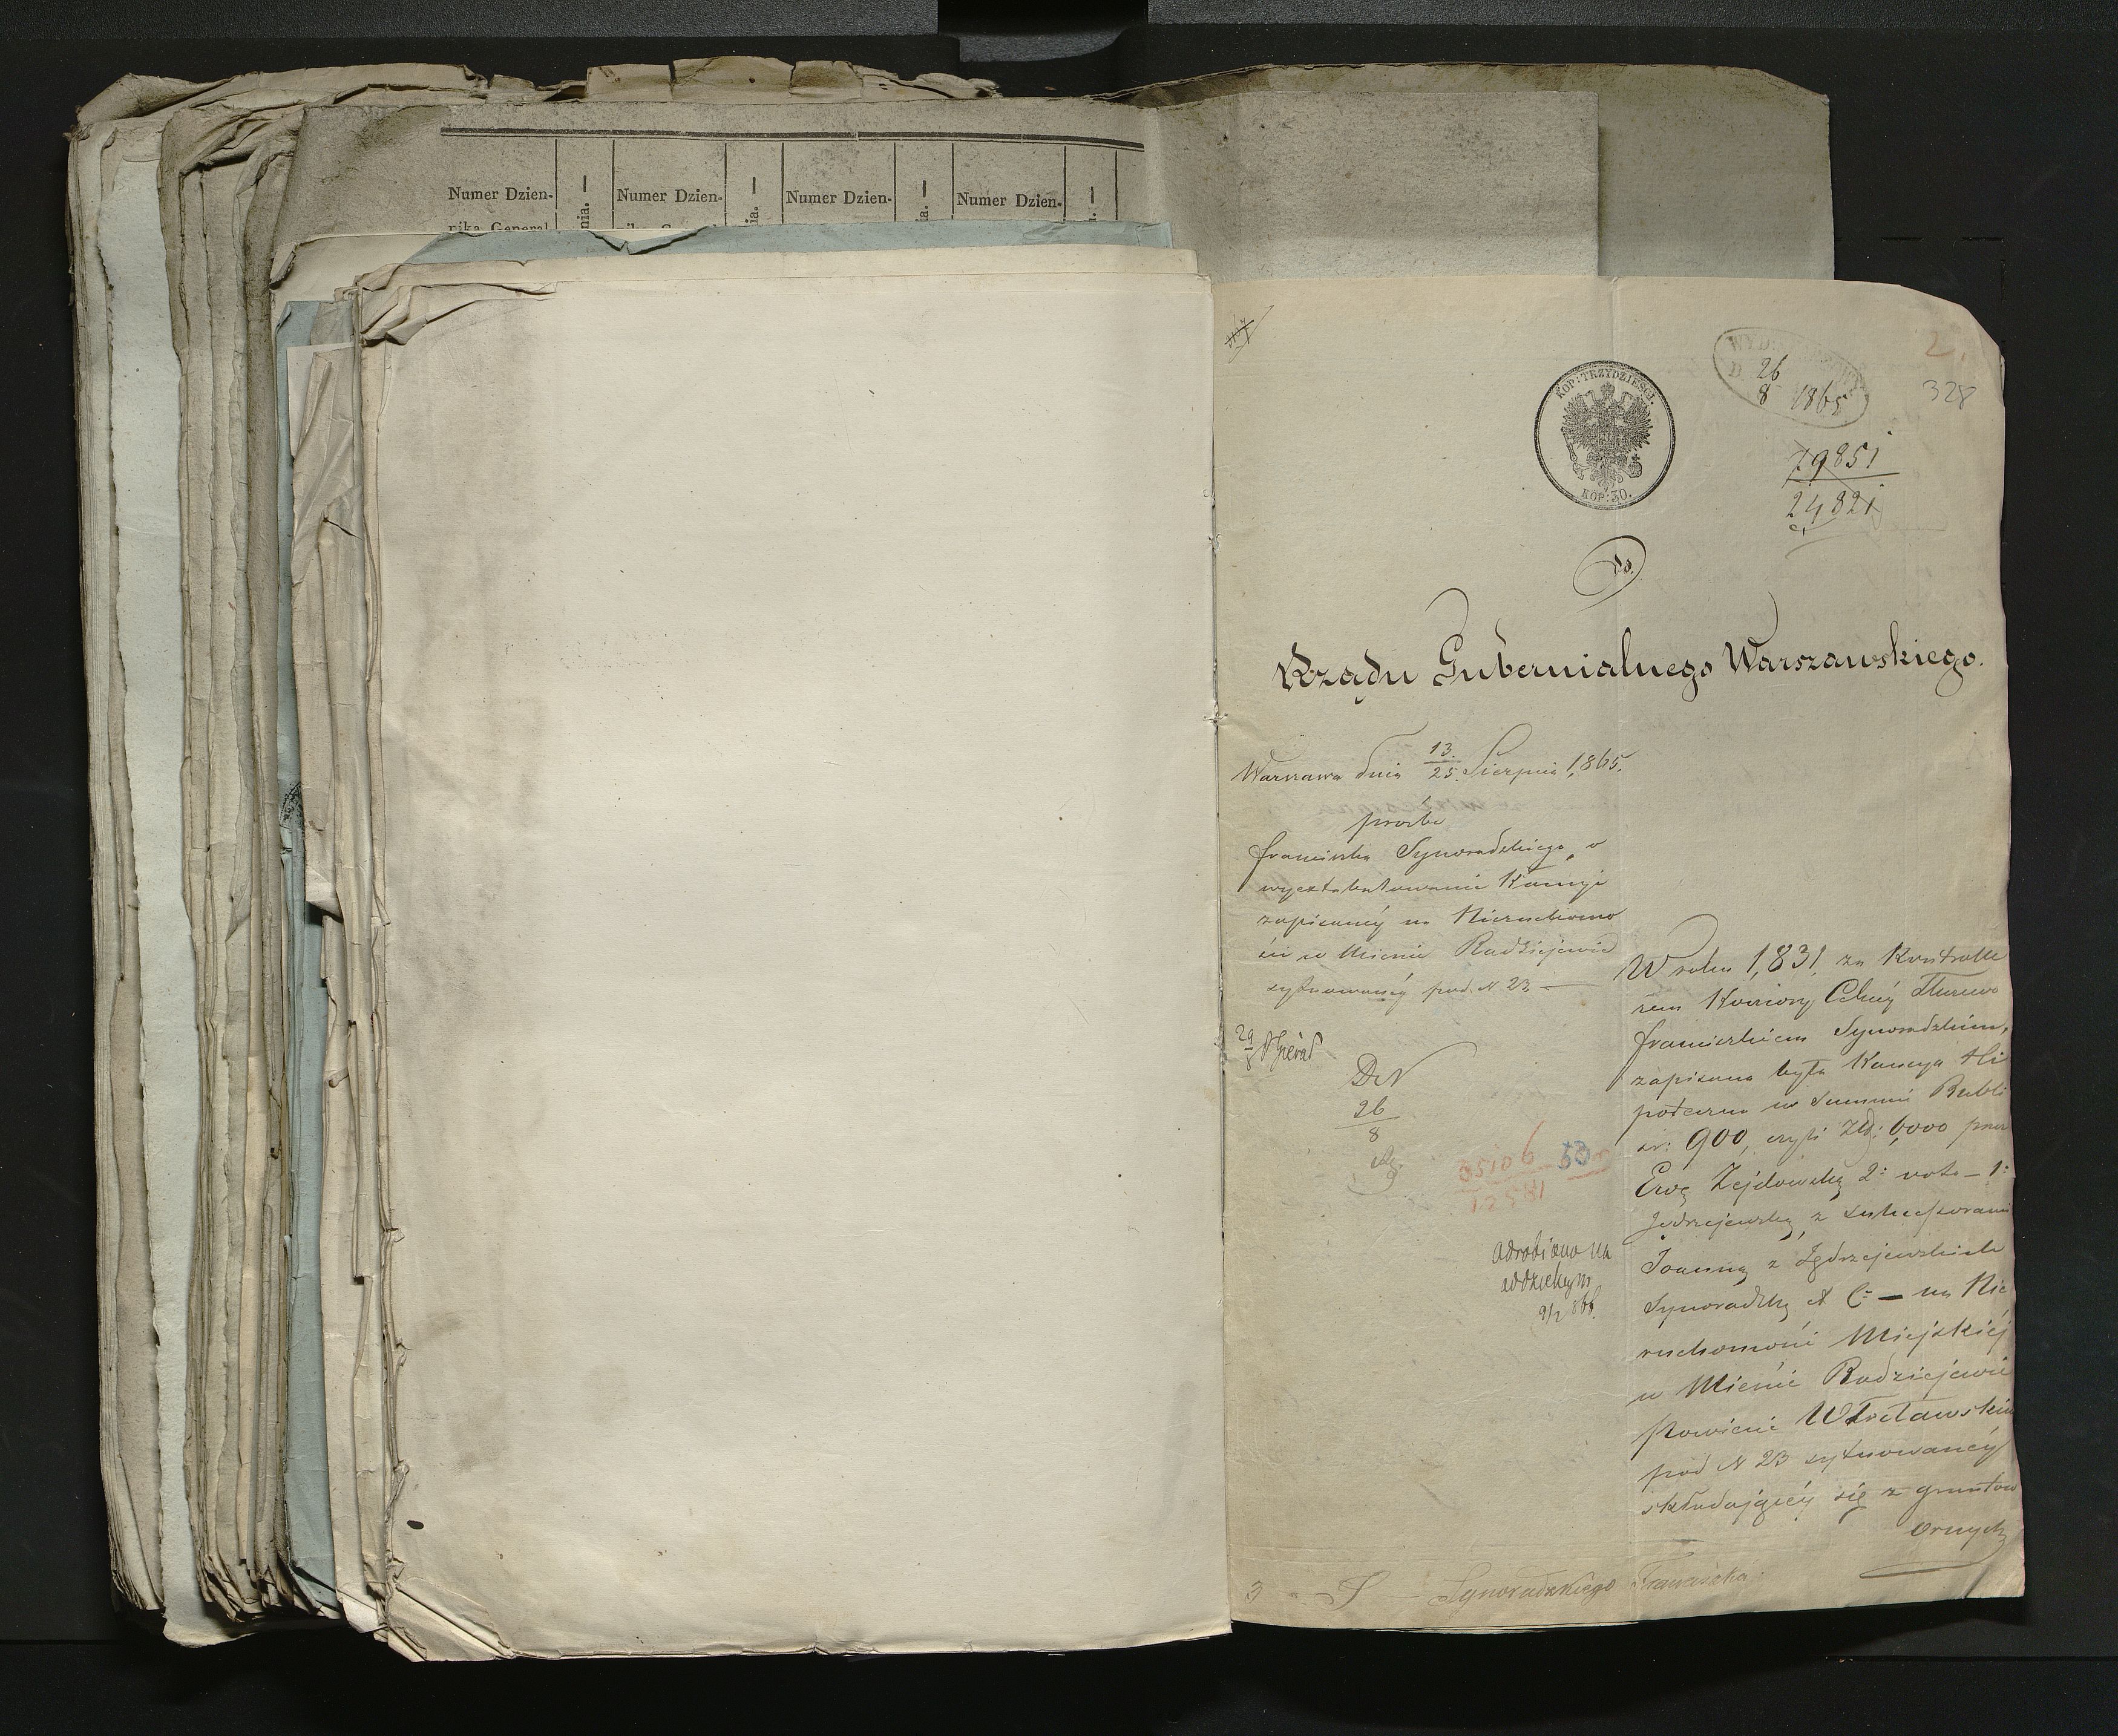 Numer Dzien- Numer Dzien- Numer Dzien- Numer Dzien-
nika General
328
26
8 1865
KOP: TRZYDZIEŚCI.
KOP: 30.
79851
24821
do
Rządu Gubernialnego Warszawskiego.
Warszawa dnia 13/25 Sierpnia 1,865.
prośba
Franciszka Synoradzkiego, o
wyextabulowanie Kaucyi
zapisanéj na Nieruchomo
ści w Mieście Radziejewie
sytuowanéj pod N 23 —
29
26
8
35106
12581
odrobiono na
oddzielnym
W roku 1,831 za Kontrolle
rem Komory Celnéj
Franciszkiem Synoradzkim,
zapisana była Kaucya Hi
poteczna w Summie Rubli
sr: 900, czyli Złp: 6000 przez
Ewę Zejdowską 2º voto – 1º
Jędrzejewską, z sukcessorami
Joanną z Jędrzejewskich
Synoradzką & C: — na Nie
ruchomości Miejskiéj
w Mieście Radziejewie
Powiecie Włocławskim
pod N 23 sytuowanéj
składającéj się z gruntów
ornych
3 S Synoradzkiego Franciszka